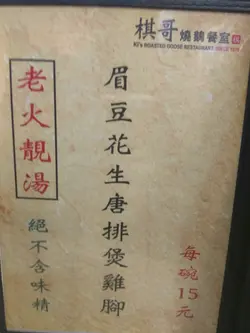 棋哥燒鵝餐室
KI's ROASTED GOOSE RESTAURANT SINCE 1978
眉豆花生唐排煲雞腳
老火靚湯
絕不含味精
每碗15元